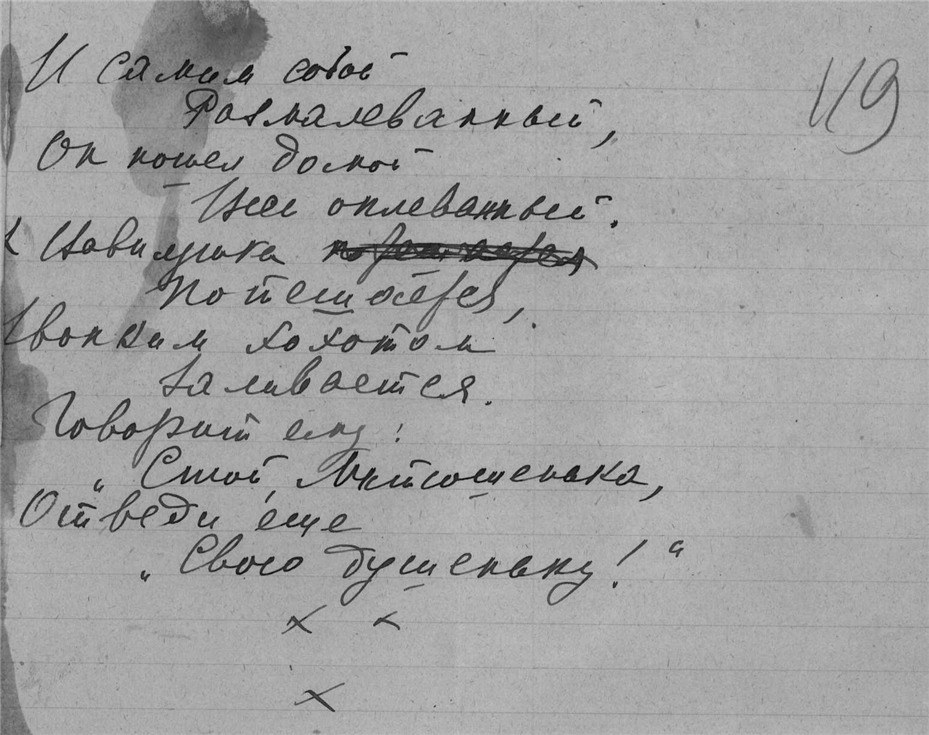 119
И самим собой
Размалеванный,
Он пошел домой
Уже оплеванный.
потешается,
Звонким хохотом
Заливается.
Говорит ему:
„Стой, Митюшенька,
Отведи еще
„Свою душеньку!“
× ×
×